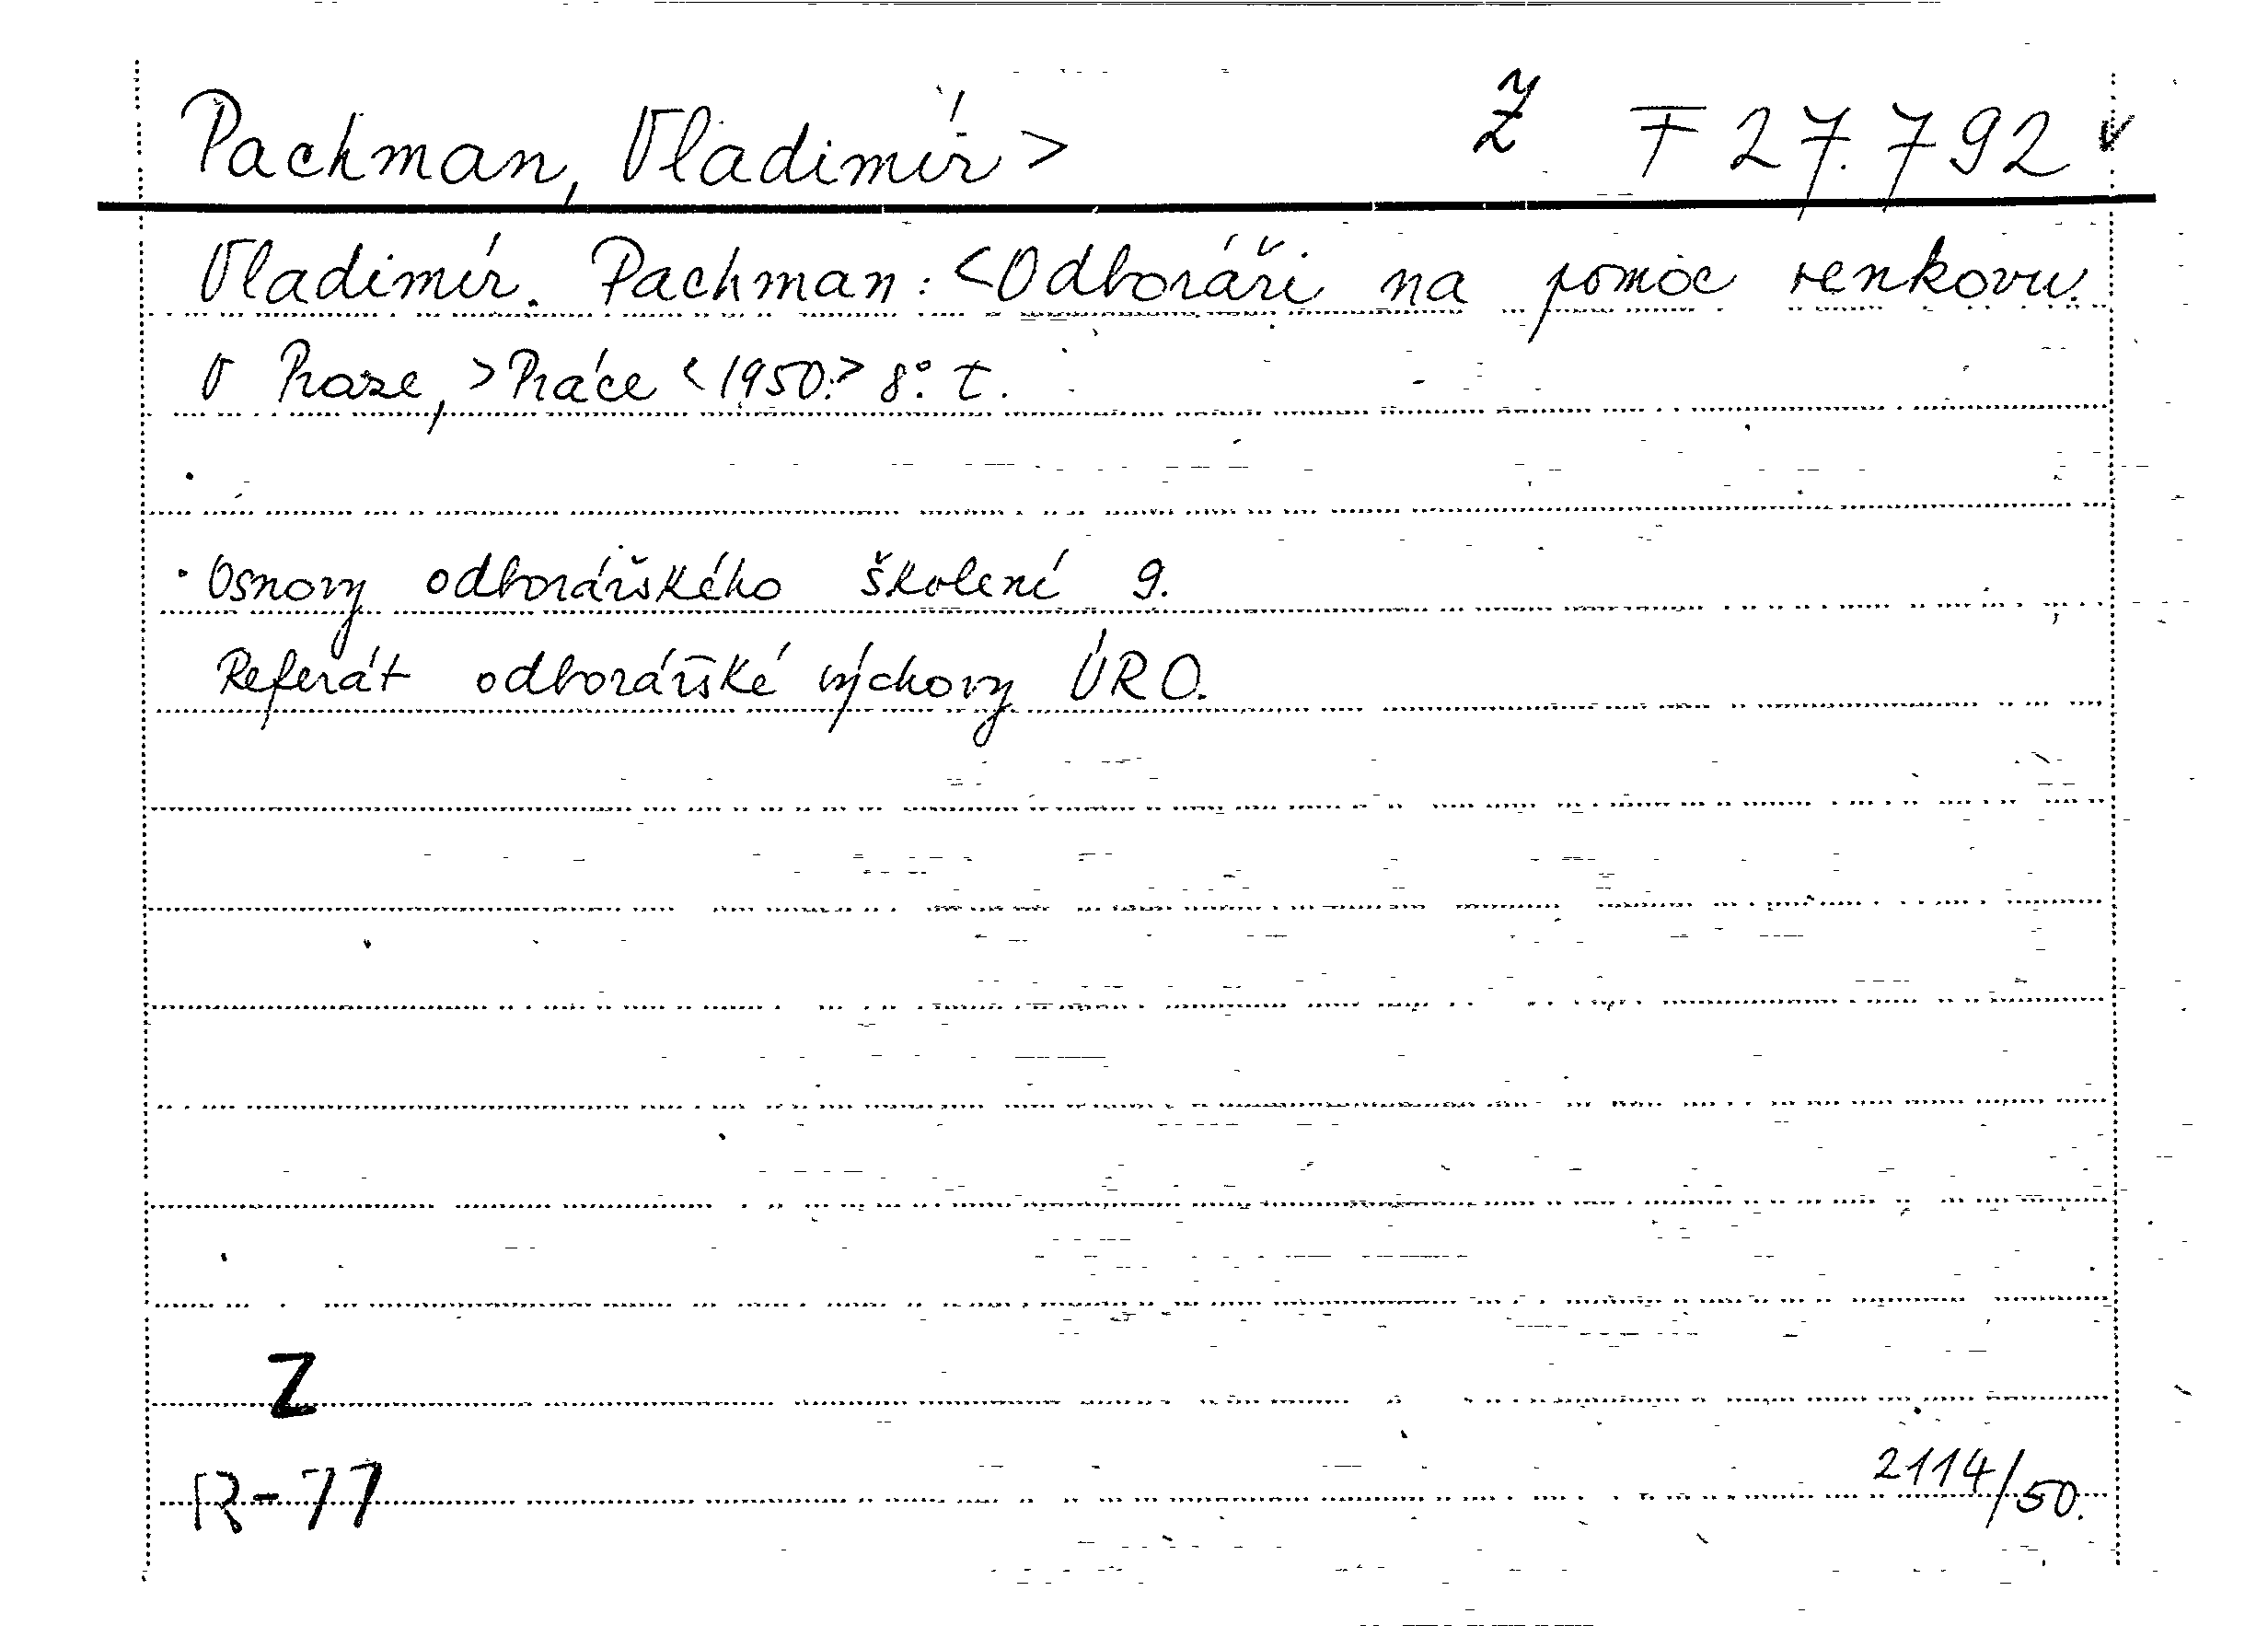 Pachman, Vladimír > Ž F 27.792 v
Vladimír. Pachman: <Odboráři na pomoc venkovu.
V Praze, >Práce <1950.> 8°. t.
Osnovy odborářského školení 9.
Referát odborářské výchovy ÚRO.
Z
R-77 2114/50.